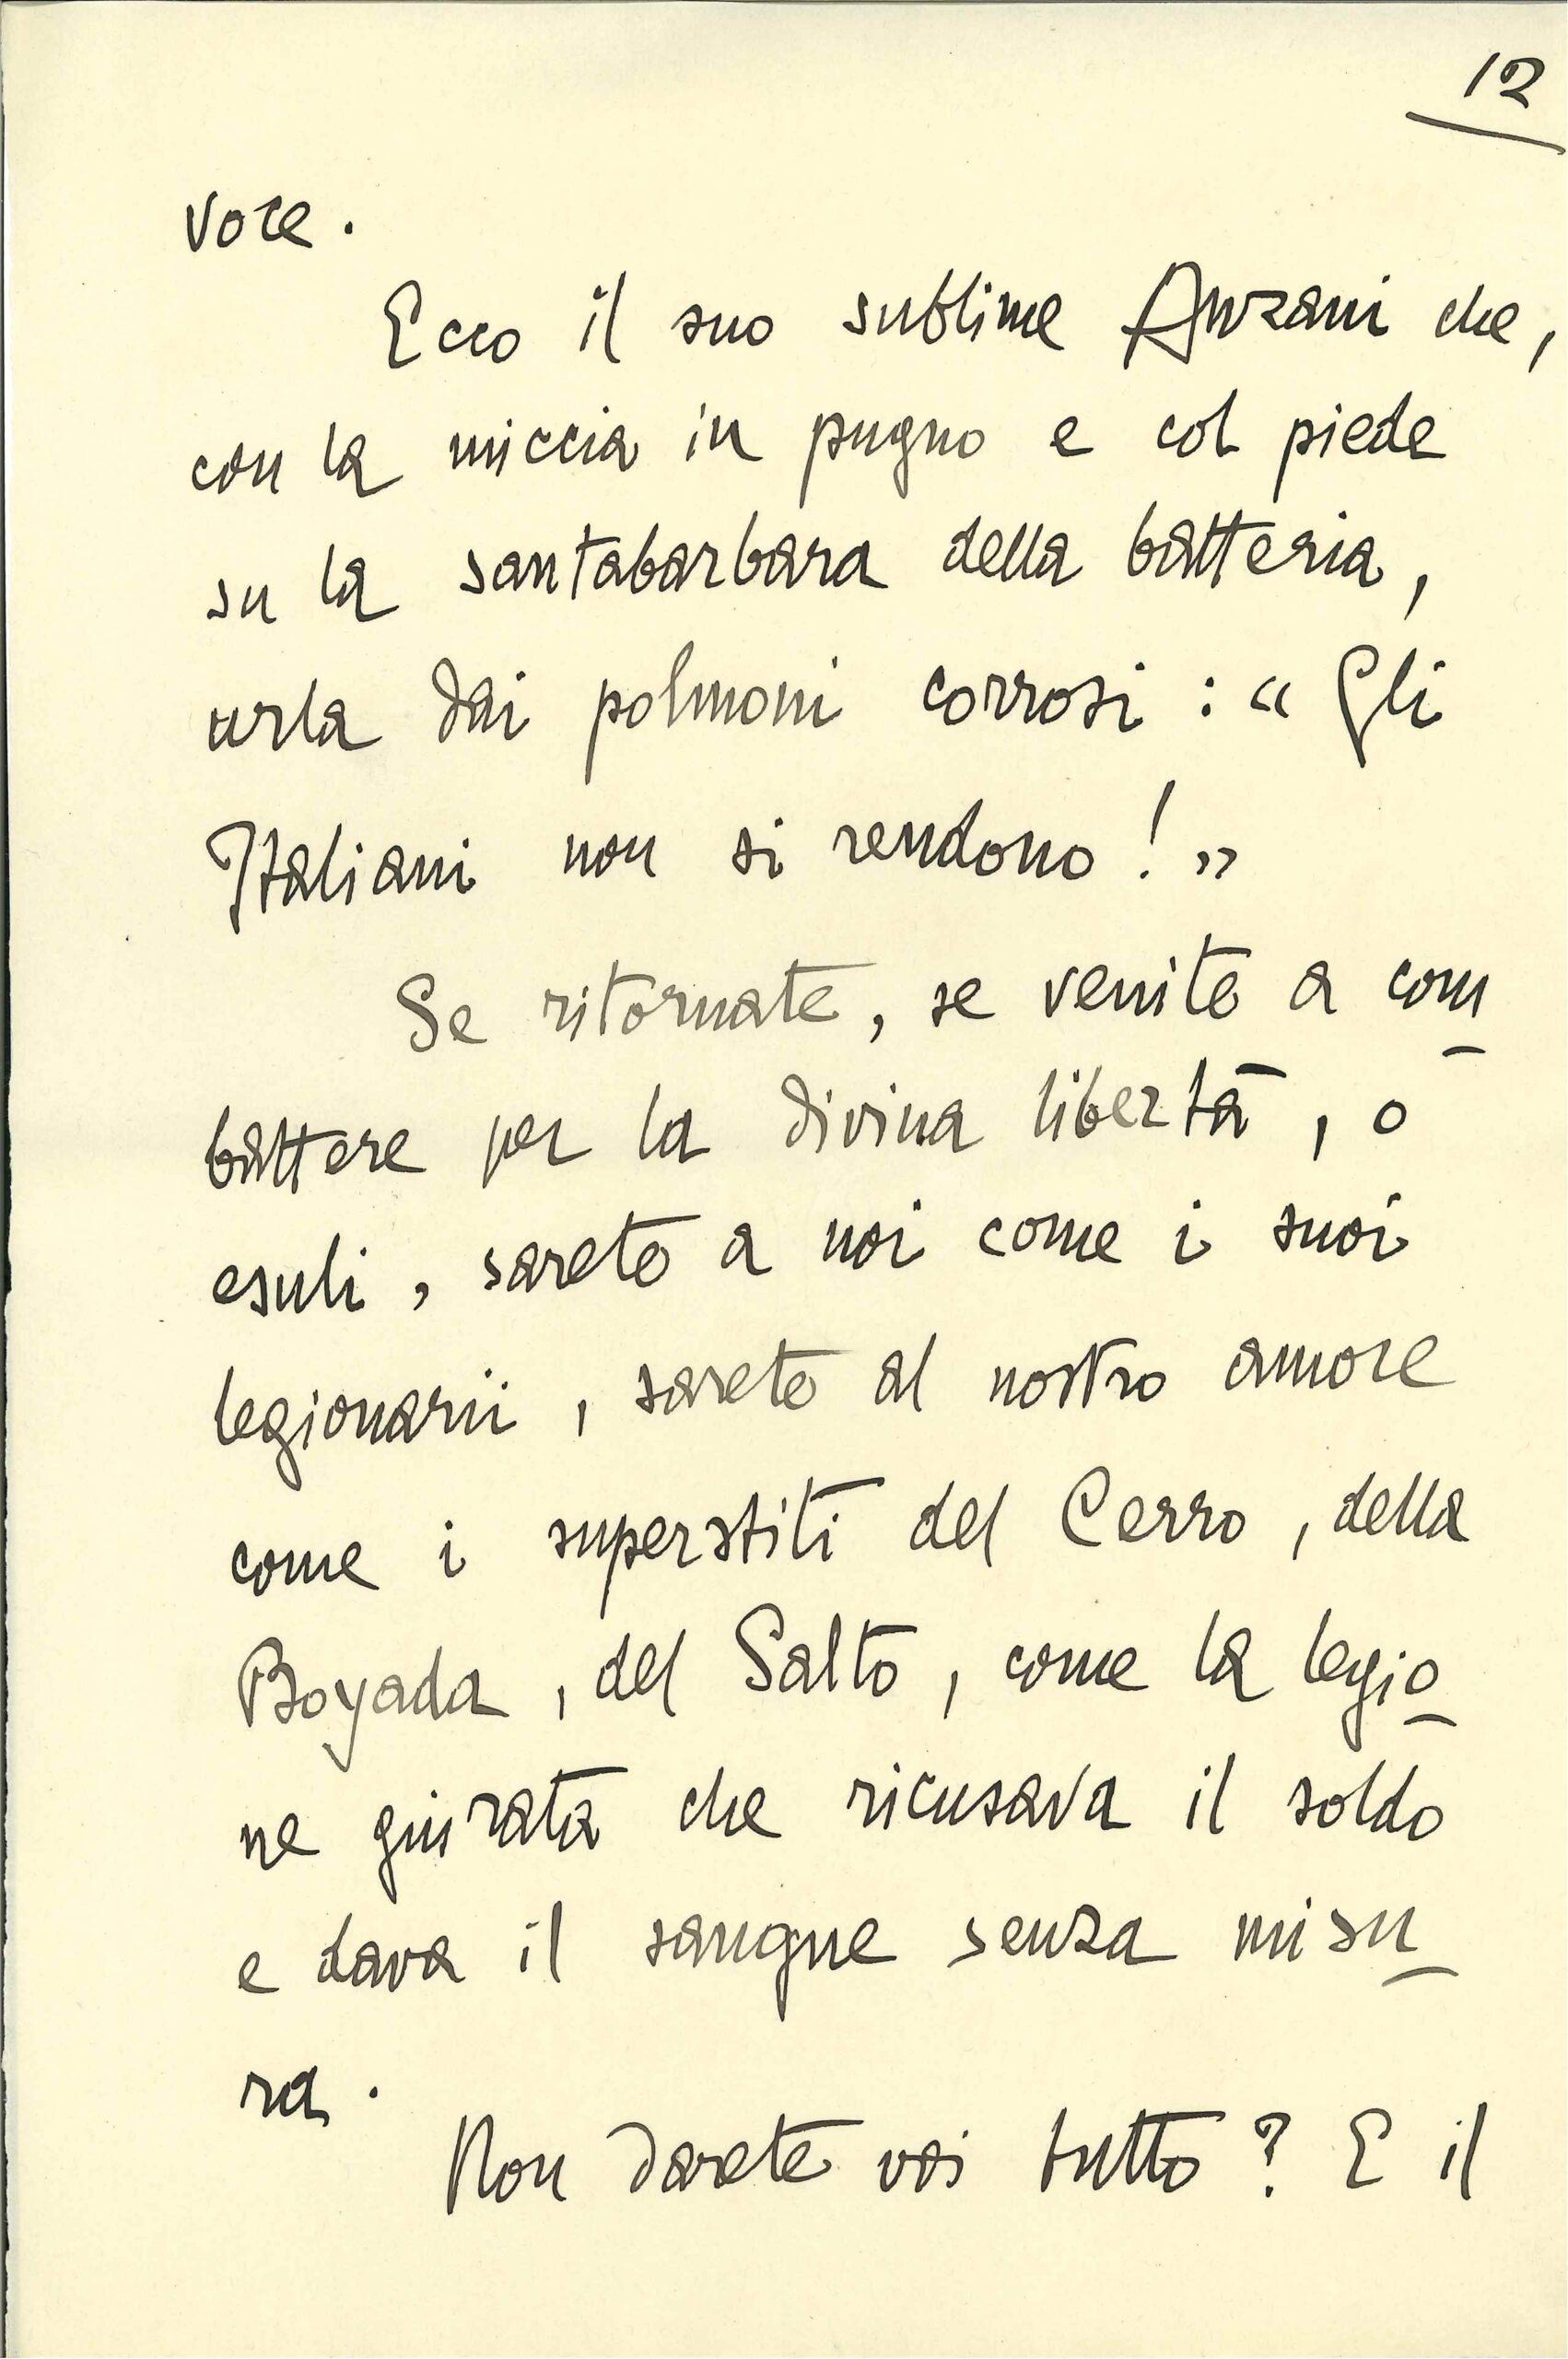 12
voce.
Ecco il suo sublime Anzani che,
con la miccia in pugno e col piede
su la santabarbara della batteria,
urla dai polmoni corrosi: « Gli
Italiani non si rendono! »
Se ritornate, se venite a com
battere per la divina libertà, o
esuli, sarete a noi come i suoi
legionarii, sarete al nostro amore
come i superstiti del Cerro, della
Boyada, del Salto, come la legio
ne giurata che ricusava il soldo
e dava il sangue senza misu
ra.
Non darete voi tutto? E il